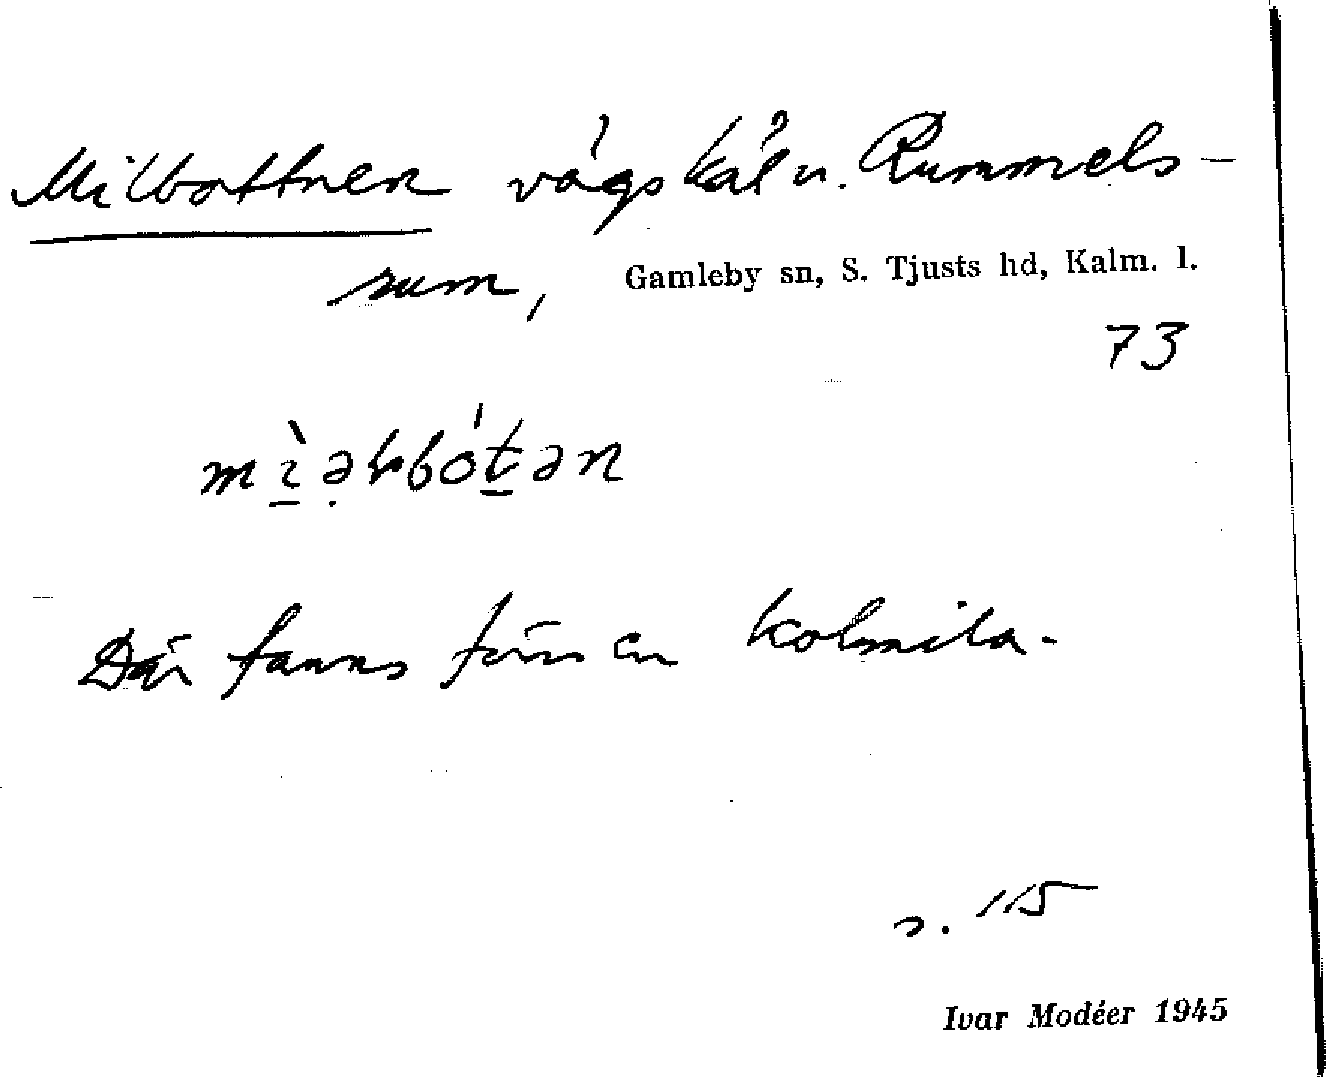 Milbottnen vägskäl n. Rummels-
rum, Gamleby sn, S. Tjusts hd, Kalm. l.
73
Där fanns förr en kolmila.
s. 115
Ivar Modéer 1945